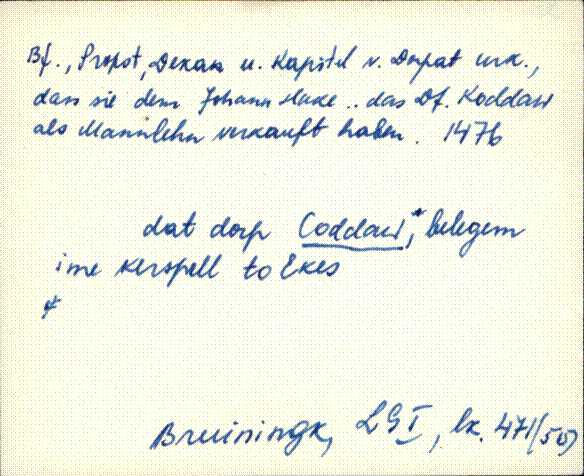 Bf., Propst, Dekan u. Kapitel v. Dorpat urk.,
dass sie dem Johann Hake .. das Df. Koddaw
als Mannlehn verkauft haben. 1476
dat dorp Coddaw,* belegem
ime kerspell to Ekes
*
Bruiningk, LG I, lk. 471 (505)